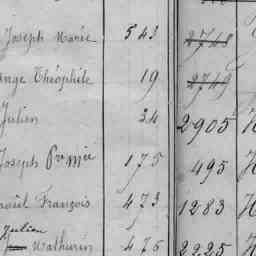 Joseph Marie 543 2748
ange Théophile 19 2749
Julien 34 2905
Joseph Pr Mie 175 495 H
raoul François 473 1283 H
Julien
Mathurin 476 2225 H